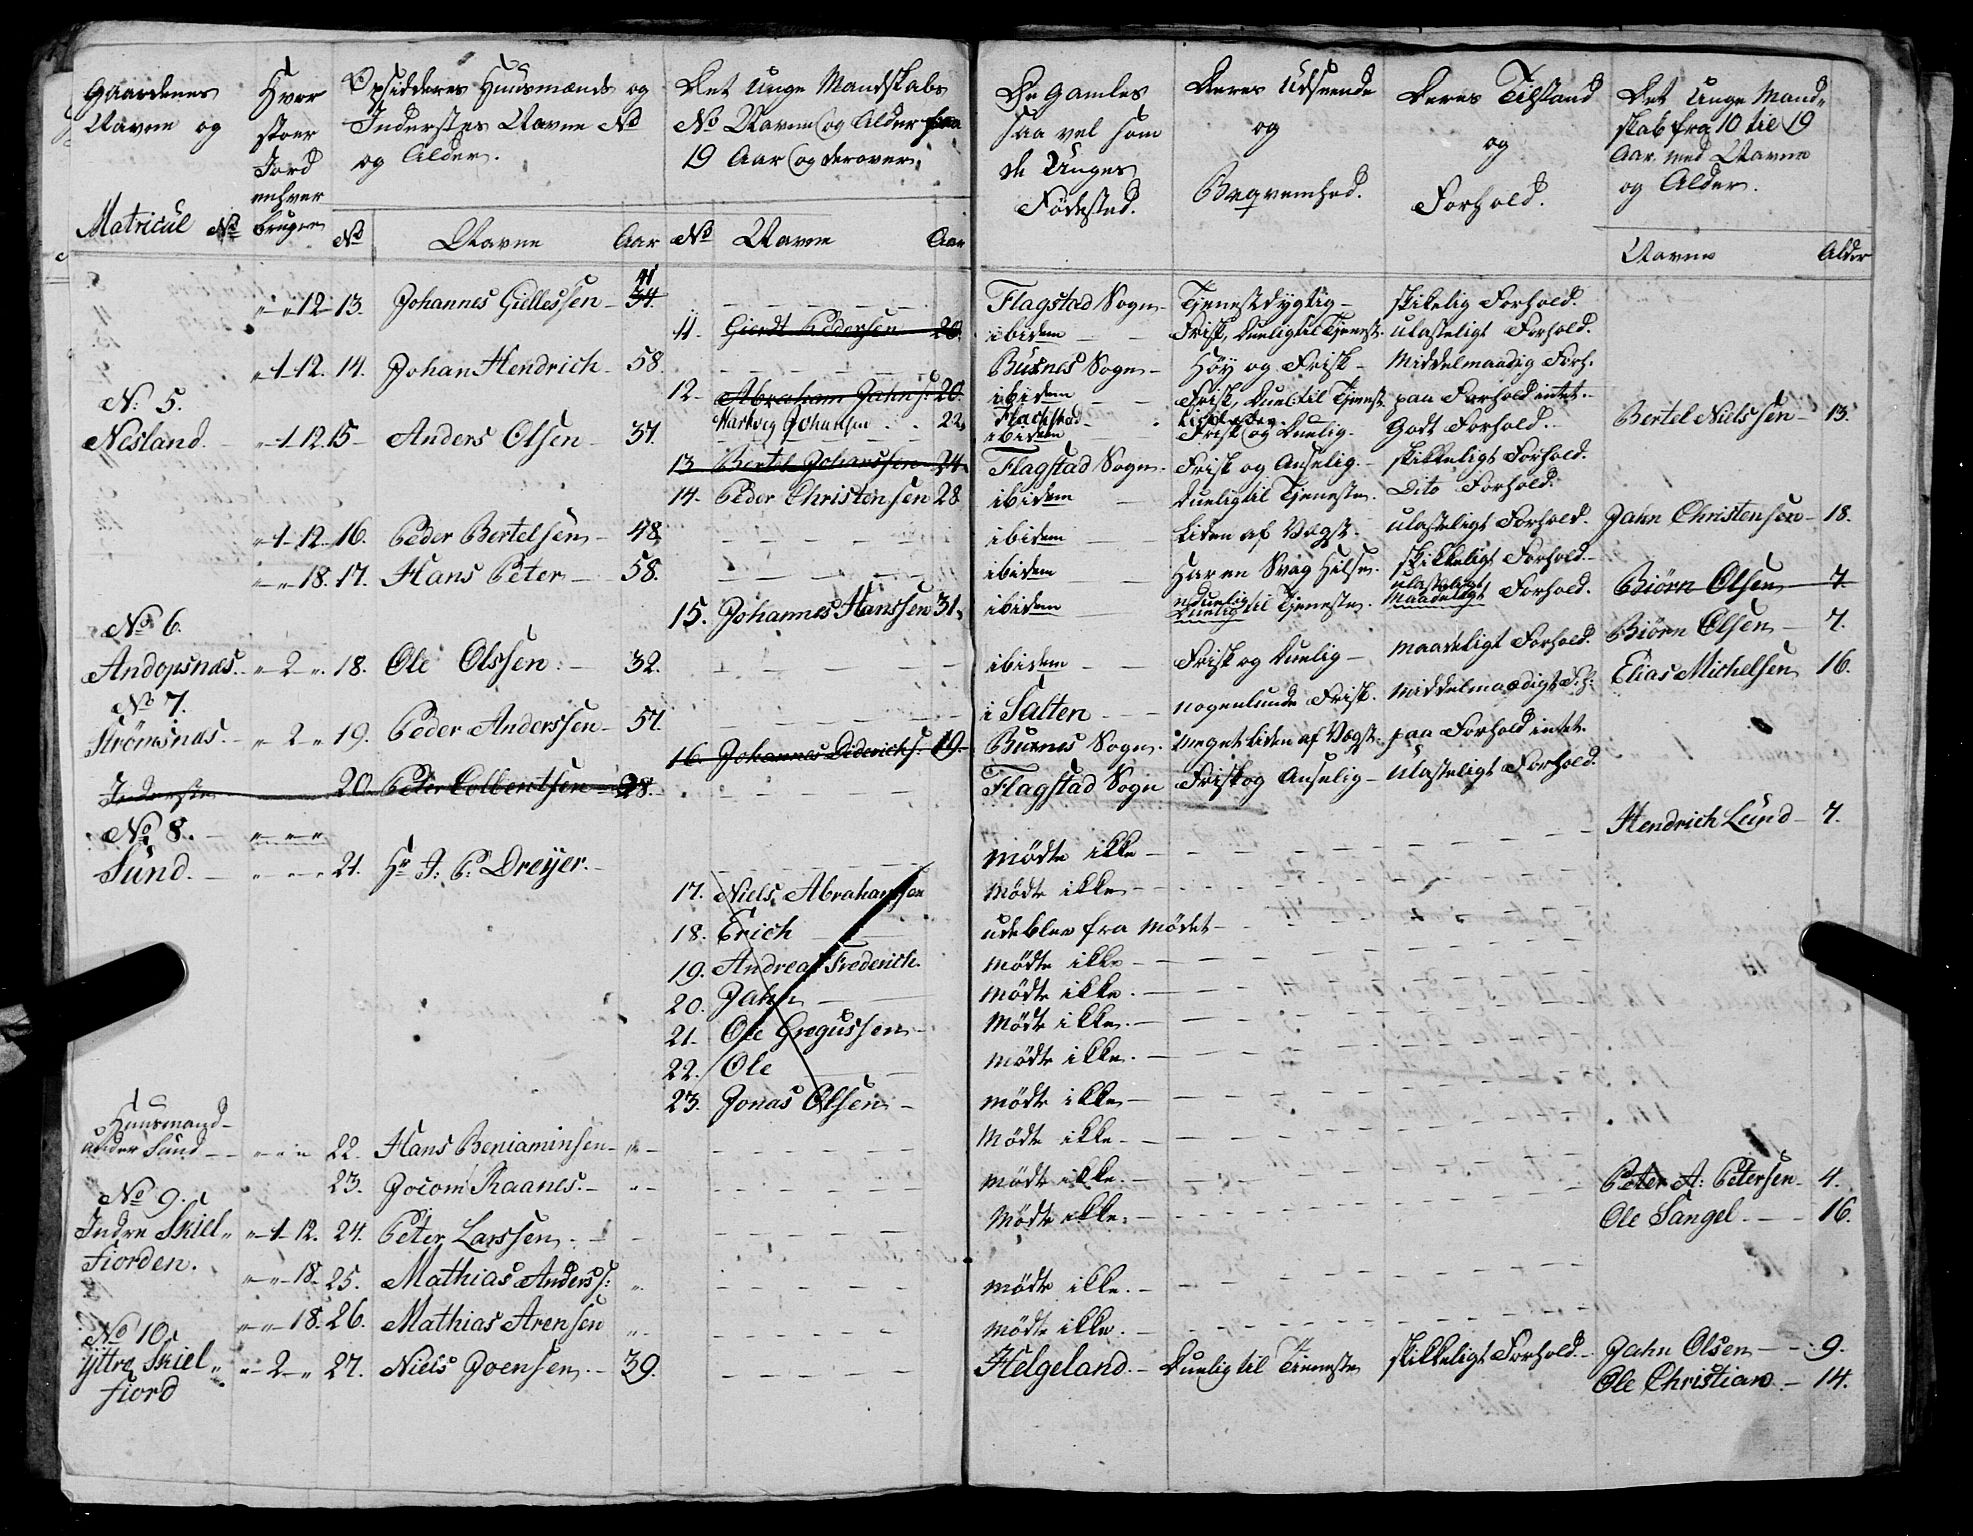 Gaardenes Navne og Matricul No
Hvor stoer Jord enhver bruger
Opsidderes Huusmænds og Inderstes Navne No og Alder.
Det Unge Mandskabs No Navne og Alder fra 19 Aar og derover.
De Gamles saa vel som de Unges Fødested.
Deres Udseende og Beqvemhed.
Deres Tilstand og Forhold.
Det Unge Mandskab fra 10 til 19 Aar med Navne og Alder.
No Navne Aar No Navne Aar Navne Alder
" " 12 13. Johannes Giellessen 34 41 Flagstad Sogn Tjenestdygtig skikelig Forhold.
11. Giert Pedersen 20. ibidem Frisk, Duelig til Tjenest. ulasteligt Forhold.
" 1 12. 14. Johan Hendrich 58. Buxnes Sogn Høy og Frisk Middelmaadig Forh.
12. Abraham Jahns: 20. ibidem Frisk, Duel. til Tjenest. paa Forhold intet.
Hartvig Johansen 22. Flachstad
No: 5.
Nesland. " 1 12 15 Anders Olsen 37. ibidem Frisk og Duelig. Godt Forhold. Bertel Nielssen 13.
13 Bertel Johanssen 24. Flagstad Sogn. Frisk og Anselig. skikkeligt Forhold.
14. Peder Christensen 28 ibidem Duelig til Tjeneste. Dito Forhold.
" 1 12 16. Peder Bertelsen 48. ibidem Liden af Vægt. ulasteligt Forhold. Jahn Christensen 18.
" " 18. 17. Hans Peter 58. ibidem Har en Svag Hilse. skikkeligt Forhold.
15. Johannes Hanssen 31. ibidem uduelig Duelig til Tjeneste. ulasteligt Maadeligt Forhold. Biørn Olsen 7.
No 6.
Andopsnæs. " 2 " 18. Ole Olssen 32. ibidem Frisk og Duelig maadeligt Forhold. Biørn Olsen 7.
Elias Michelsen 16.
No 7.
Strömsnæs. " 2 " 19. Peder Anderssen 57. i Salten nogenlunde Frisk. middelmaadigt F.h:
16. Johannes Diderichs. 19. Buxnes Sogn. meget Liden af Vægt. paa Forhold intet.
Inderste 20. Peder Colbentsen 28. Flagstad Sogn Frisk og Anselig ulasteligt Forhold.
No 8. " " " Hendrich Lund 7.
Sund. " " " 21. Hr J: P: Dreyer. mødte ikke
17. Niels Abrahamsen mødte ikke
18. Erich udeblev fra Mødet
19. Andreas Frederich. mødte ikke
20. Jahn mødte ikke.
21. Ole Gregussen mødte ikke.
22. Ole mødte ikke.
23. Jonas Olsen mødte ikke
Huusmand under Sund " " " 22. Hans Beniaminsen mødte ikke.
23. Jocom Raanes. mødte ikke. Peter A: Petersen 4.
No 9.
Indre Skielfiorden. " 1 12. 24. Peter Larssen. mødte ikke. Ole Sangel 16.
" " 18. 25. Mathias Anderss: mødte ikke.
" " 18. 26. Mathias Arensen mødte ikke.
No 10
Yttre Skielfiord " 2 " 27. Niels Joensen. 39. Helgeland. Duelig til Tieneste skikkeligt Forhold. Jahn Olsen 9.
Ole Christian 14.